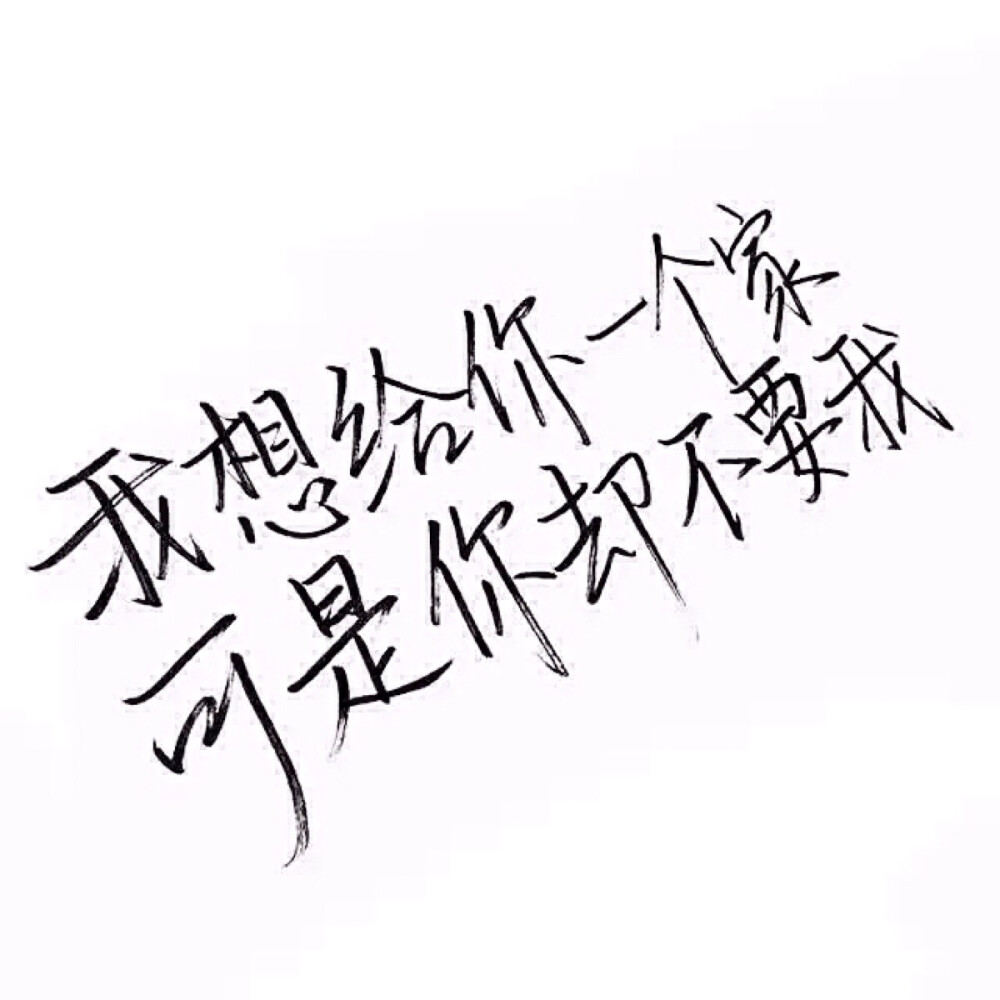 我想给你一个家
可是你却不要我